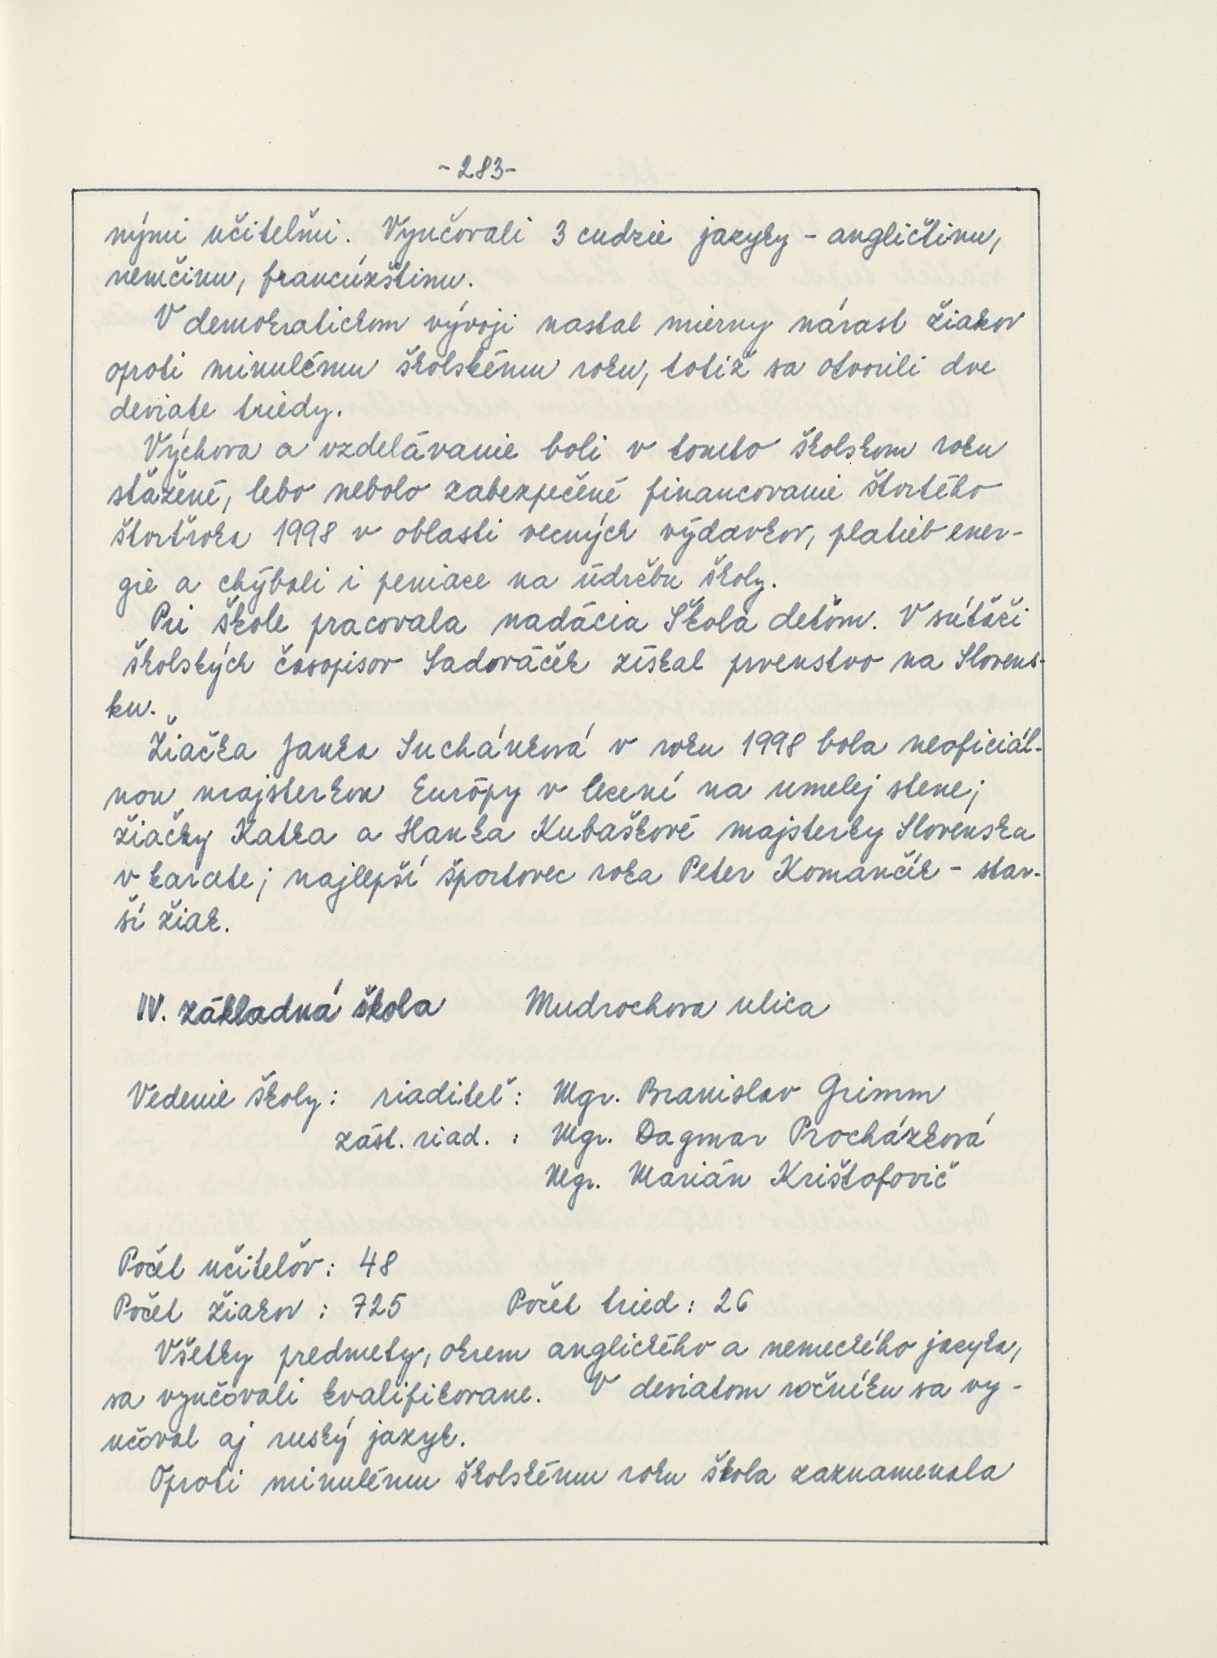 -283-
nými učiteľmi. Vyučovali 3 cudzie jazyky - angličtinu,
nemčinu, francúzštinu.
V demokratickom vývoji nastal mierny nárast žiakov
oproti minulému školskému roku, totiž sa otvorili dve
deviate triedy.
Výchova a vzdelávanie boli v tomto školskom roku
stážené, lebo nebolo zabezpečené financovanie štvrtého
štvrťroka 1998 v oblasti vecných výdavkov, platieb ener-
gie a chýbali i peniaze na údržbu školy.
Pri škole pracovala nadácia Škola deťom. V súťaži
školských časopisov Sadováčik získal prvenstvo na Slovens-
ku.
Žiačka Janka Suchánková v roku 1998 bola neoficiál-
nou majsterkou Európy v lezení na umelej stene;
žiačky Katka a Hanka Kubaškové majsterky Slovenska
v karate; najlepší športovec roka Peter Komančík - star-
ší žiak.
IV. základná škola Mudrochova ulica
Vedenie školy: riaditeľ: Mgr. Branislav Grimm
zást. riad. : Mgr. Dagmar Procházková
Mgr. Marián Krištofovič
Počet učiteľov: 48
Počet žiakov : 725 Počet tried: 26
Všetky predmety, okrem anglického a nemeckého jazyka,
sa vyučovali kvalifikovane. V deviatom ročníku sa vy-
učoval aj ruský jazyk.
Oproti minulému školskému roku škola zaznamenala